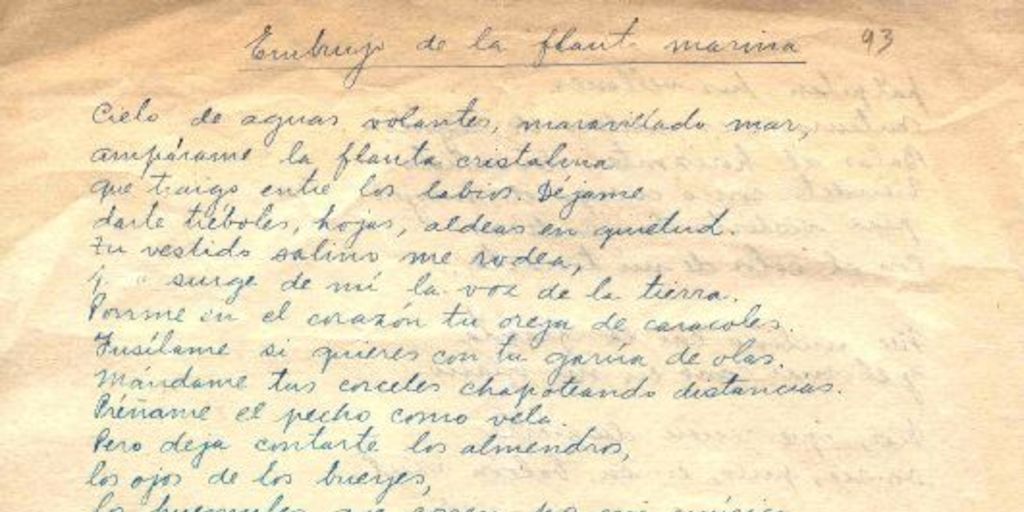 Embrujo de la flauta marina 93
Cielo de aguas volantes, maravillado mar,
ampárame la flauta cristalina
que traigo entre los labios. Déjame
darte tréboles, hojas, aldeas en quietud.
Tu vestido salino me rodea,
y surge de mí la voz de la tierra.
Ponme en el corazón tu oreja de caracoles.
Fusílame si quieres con tu garúa de olas.
Mándame tus corceles chapoteando distancias.
Préñame el pecho como vela.
Pero deja contarte los almendros,
los ojos de los bueyes,